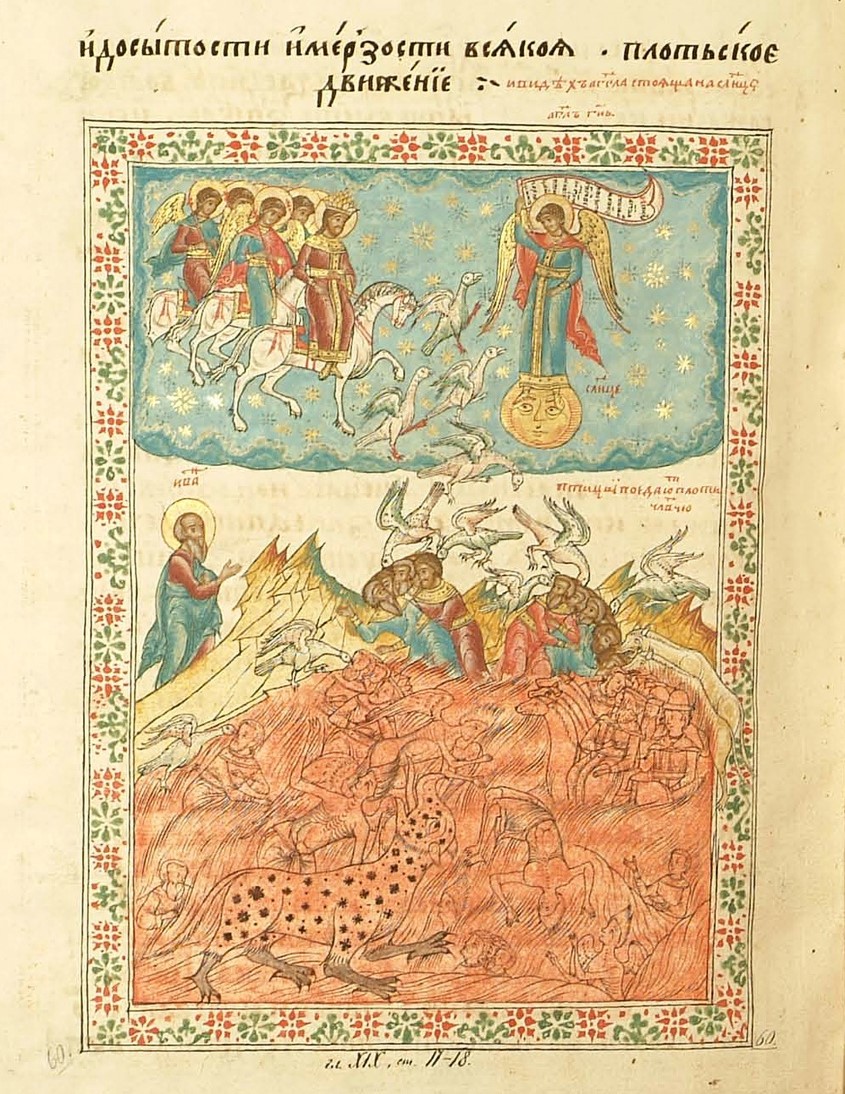 и҆досы́тости и҆ме́рзости вся́коѧ · пло́тьско́є
движе́нїе :~ ивидѣхъ аг҃гла стоѧща на сл҃нцѣ
агг҃лъ гн҃ь.
сл҃нце
ива҃
птицы поедаю плоти
члв҃чю
гл. XIX, ст. 17-18.
60.
60.